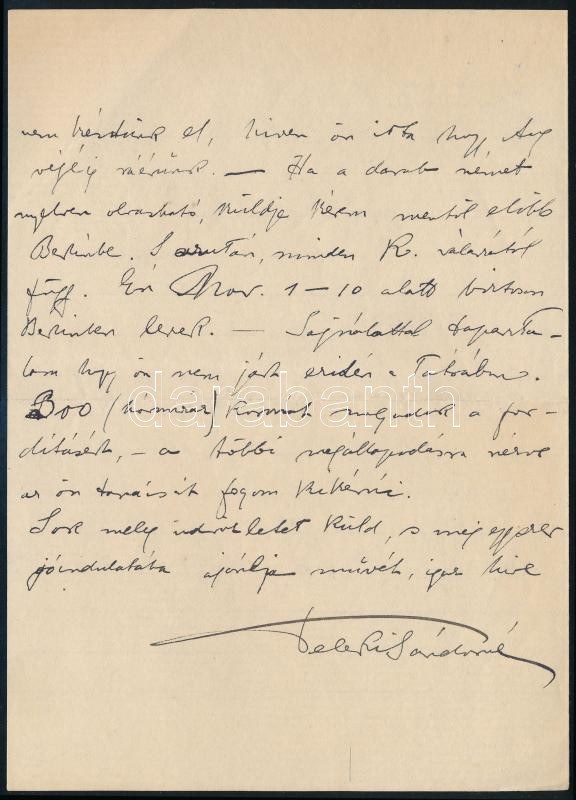 nem késtünk el, hiven ön írta hogy Aug
végéig ráérünk. — Ha a darab német
nyelven olvasható, küldje kérem mentől előbb
Berlinbe. S azután, minden R. válaszától
függ. Én Nov. 1–10 alatt biztosan
Berlinben leszek. — Sajnálattal tapaszta-
lom hogy ön nem járt eridén a Tátrában.
300 (háromszáz) koronát megadok a for-
dításért, – a többi megállapodásra nézve
az ön tanácsát fogom kikérni.
Sok meleg üdvözletet küld, s még egyszer
jóindulatába ajánlja művét, igaz híve
Teleki Sándorné
darabanth